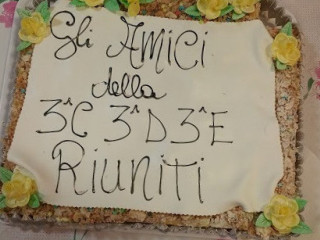 Gli AMiCi
della
3^C 3^D 3^E
RiuNiTi